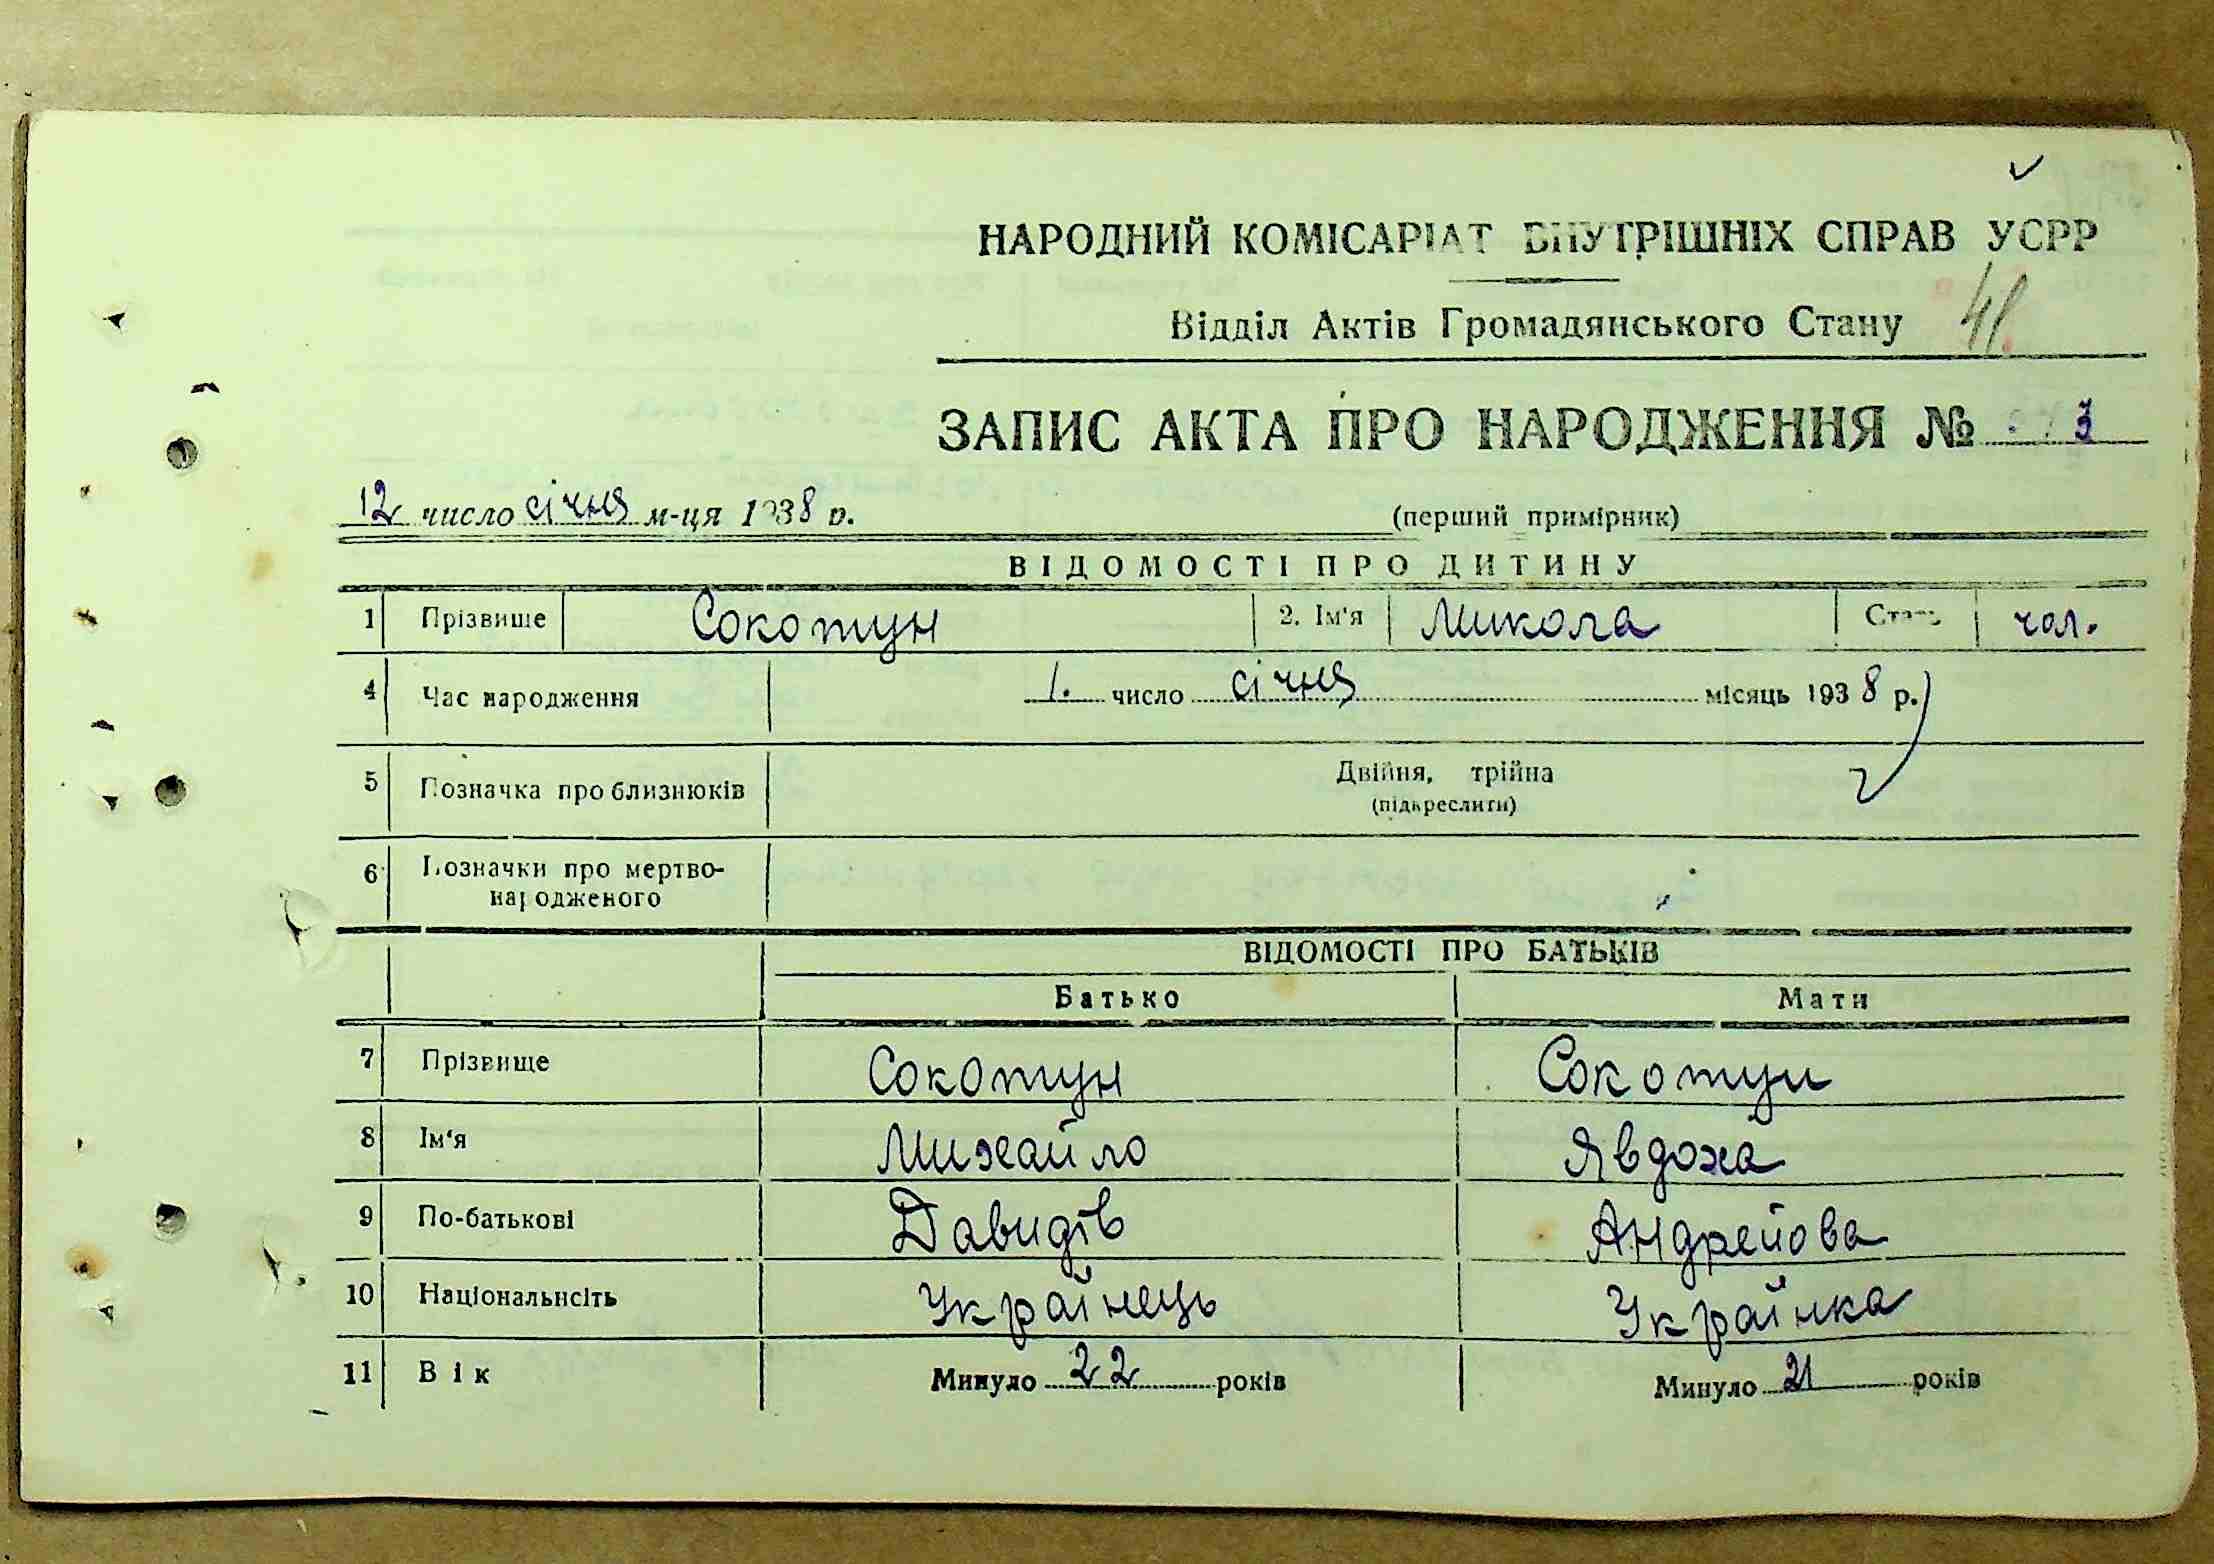 НАРОДНИЙ КОМІСАРІАТ ВНУТРІШНІХ СПРАВ УСРР
Відділ Актів Громадянського Стану
ЗАПИС АКТА ПРО НАРОДЖЕННЯ № 3
12 число січня м-ця 1938 р.
(перший примірник)
ВІДОМОСТІ ПРО ДИТИНУ
1 Прізвище Сокотун 2. Ім'я Микола Стать чол.
4 Час народження 1. число січня місяць 1938 р.
5 Позначка про близнюків Двійня, трійна
(підкреслити)
6 Позначки про мертво-
народженого
ВІДОМОСТІ ПРО БАТЬКІВ
Батько Мати
7 Прізвище Сокотун Сокотун
8 Ім'я Михайло Явдоха
9 По-батькові Давидів Андрейова
10 Національнсіть Українець Українка
11 Вік Минуло 22 років Минуло 21 років